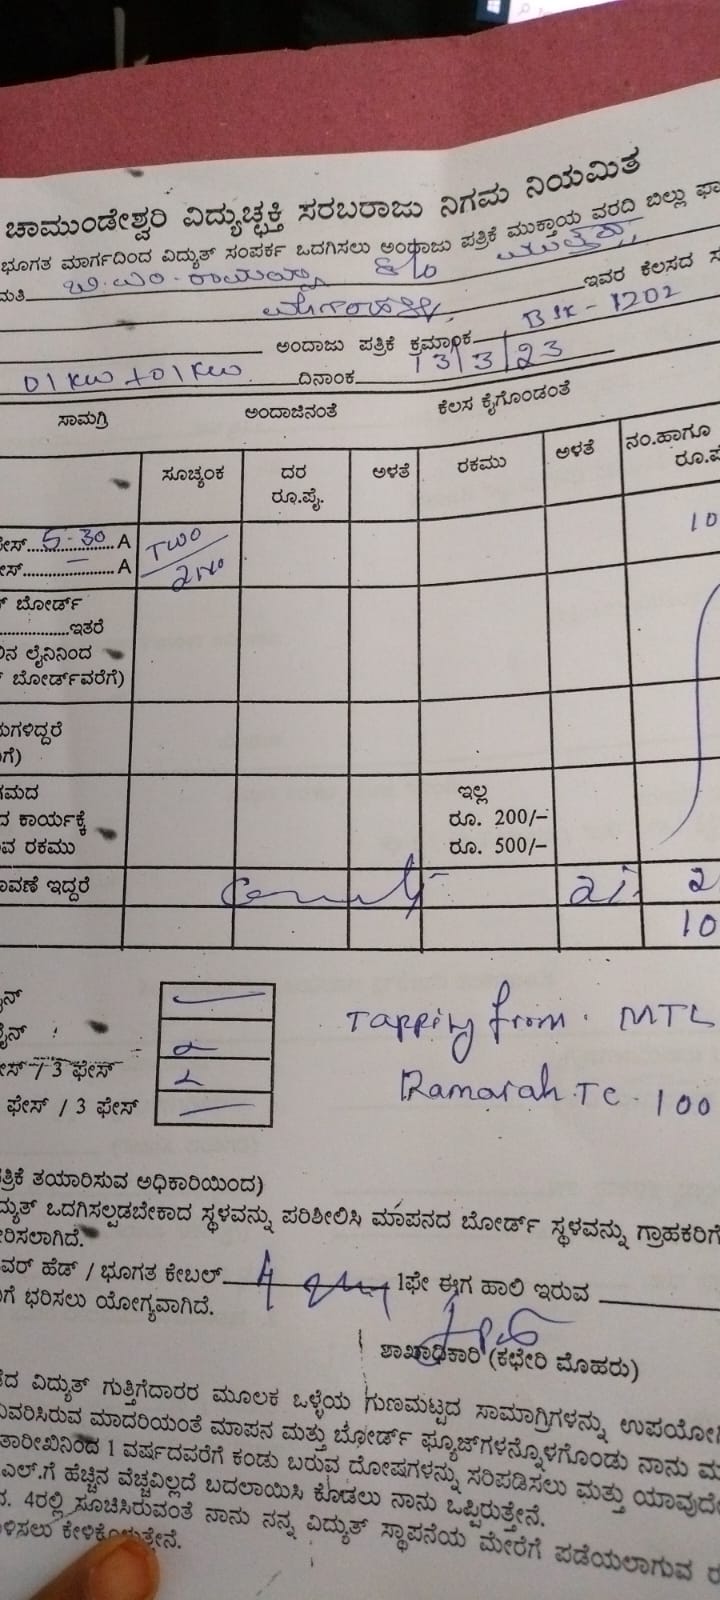 ಚಾಮುಂಡೇಶ್ವರಿ ವಿದ್ಯುಚ್ಛಕ್ತಿ ಸರಬರಾಜು ನಿಗಮ ನಿಯಮಿತ
ಭೂಗತ ಮಾರ್ಗದಿಂದ ವಿದ್ಯುತ್ ಸಂಪರ್ಕ ಒದಗಿಸಲು ಅಂದಾಜು ಪತ್ರಿಕೆ ಮುಕ್ತಾಯ ವರದಿ ಬಿಲ್ಲು ಫಾ
ಮತಿ
ಇವರ ಕೆಲಸದ ಸ
ಅಂದಾಜು ಪತ್ರಿಕೆ ಕ್ರಮಾಂಕ BSK-1202
01 KW + 01 KW ದಿನಾಂಕ 13/3/23
ಸಾಮಗ್ರಿ ಅಂದಾಜಿನಂತೆ ಕೆಲಸ ಕೈಗೊಂಡಂತೆ
ಸೂಚ್ಯಂಕ ದರ ರೂ.ಪೈ. ಅಳತೆ ರಕಮು ಅಳತೆ ನಂ.ಹಾಗೂ ರೂ.ಪೈ
ಫೇಸ್ 5-30 A TWO 10
ಫೇಸ್ - A 2No
ಬೋರ್ಡ್
ಇತರೆ
ನ ಲೈನಿನಿಂದ
ಬೋರ್ಡ್‌ವರೆಗೆ)
ಗಳಿದ್ದರೆ
ಗೆ)
ಗಮದ ಇಲ್ಲ
ದ ಕಾರ್ಯಕ್ಕೆ ರೂ. 200/-
ವ ರಕಮು ರೂ. 500/-
ಾವಣೆ ಇದ್ದರೆ 2
10
Tapping from. MTL
ಫೇಸ್ / 3 ಫೇಸ್
ಫೇಸ್ / 3 ಫೇಸ್ TC - 100
ತ್ರಿಕೆ ತಯಾರಿಸುವ ಅಧಿಕಾರಿಯಿಂದ)
ದ್ಯುತ್ ಒದಗಿಸಲ್ಪಡಬೇಕಾದ ಸ್ಥಳವನ್ನು ಪರಿಶೀಲಿಸಿ ಮಾಪನದ ಬೋರ್ಡ್ ಸ್ಥಳವನ್ನು ಗ್ರಾಹಕರಿಗೆ
ರಿಸಲಾಗಿದೆ.
ವರ್ ಹೆಡ್ / ಭೂಗತ ಕೇಬಲ್ 1ಫೇ ಈಗ ಹಾಲಿ ಇರುವ
ಗೆ ಭರಿಸಲು ಯೋಗ್ಯವಾಗಿದೆ.
ಶಾಖಾಧಿಕಾರಿ (ಕಛೇರಿ ಮೊಹರು)
ದ ವಿದ್ಯುತ್ ಗುತ್ತಿಗೆದಾರರ ಮೂಲಕ ಒಳ್ಳೆಯ ಗುಣಮಟ್ಟದ ಸಾಮಾಗ್ರಿಗಳನ್ನು ಉಪಯೋಗಿ
ವಿವರಿಸಿರುವ ಮಾದರಿಯಂತೆ ಮಾಪನ ಮತ್ತು ಬೋರ್ಡ್ ಫ್ಯೂಜ್‌ಗಳನ್ನೊಳಗೊಂಡು ನಾನು ಮ
ತಾರೀಖಿನಿಂದ 1 ವರ್ಷದವರೆಗೆ ಕಂಡು ಬರುವ ದೋಷಗಳನ್ನು ಸರಿಪಡಿಸಲು ಮತ್ತು ಯಾವುದೇ
ಎಲ್.ಗೆ ಹೆಚ್ಚಿನ ವೆಚ್ಚವಿಲ್ಲದೆ ಬದಲಾಯಿಸಿ ಕೊಡಲು ನಾನು ಒಪ್ಪಿರುತ್ತೇನೆ.
ನ. 4ರಲ್ಲಿ ಸೂಚಿಸಿರುವಂತೆ ನಾನು ನನ್ನ ವಿದ್ಯುತ್ ಸ್ಥಾಪನೆಯ ಮೇರೆಗೆ ಪಡೆಯಲಾಗುವ ರ
ಳಿಸಲು ಕೇಳಿಕೊಳ್ಳುತ್ತೇನೆ.